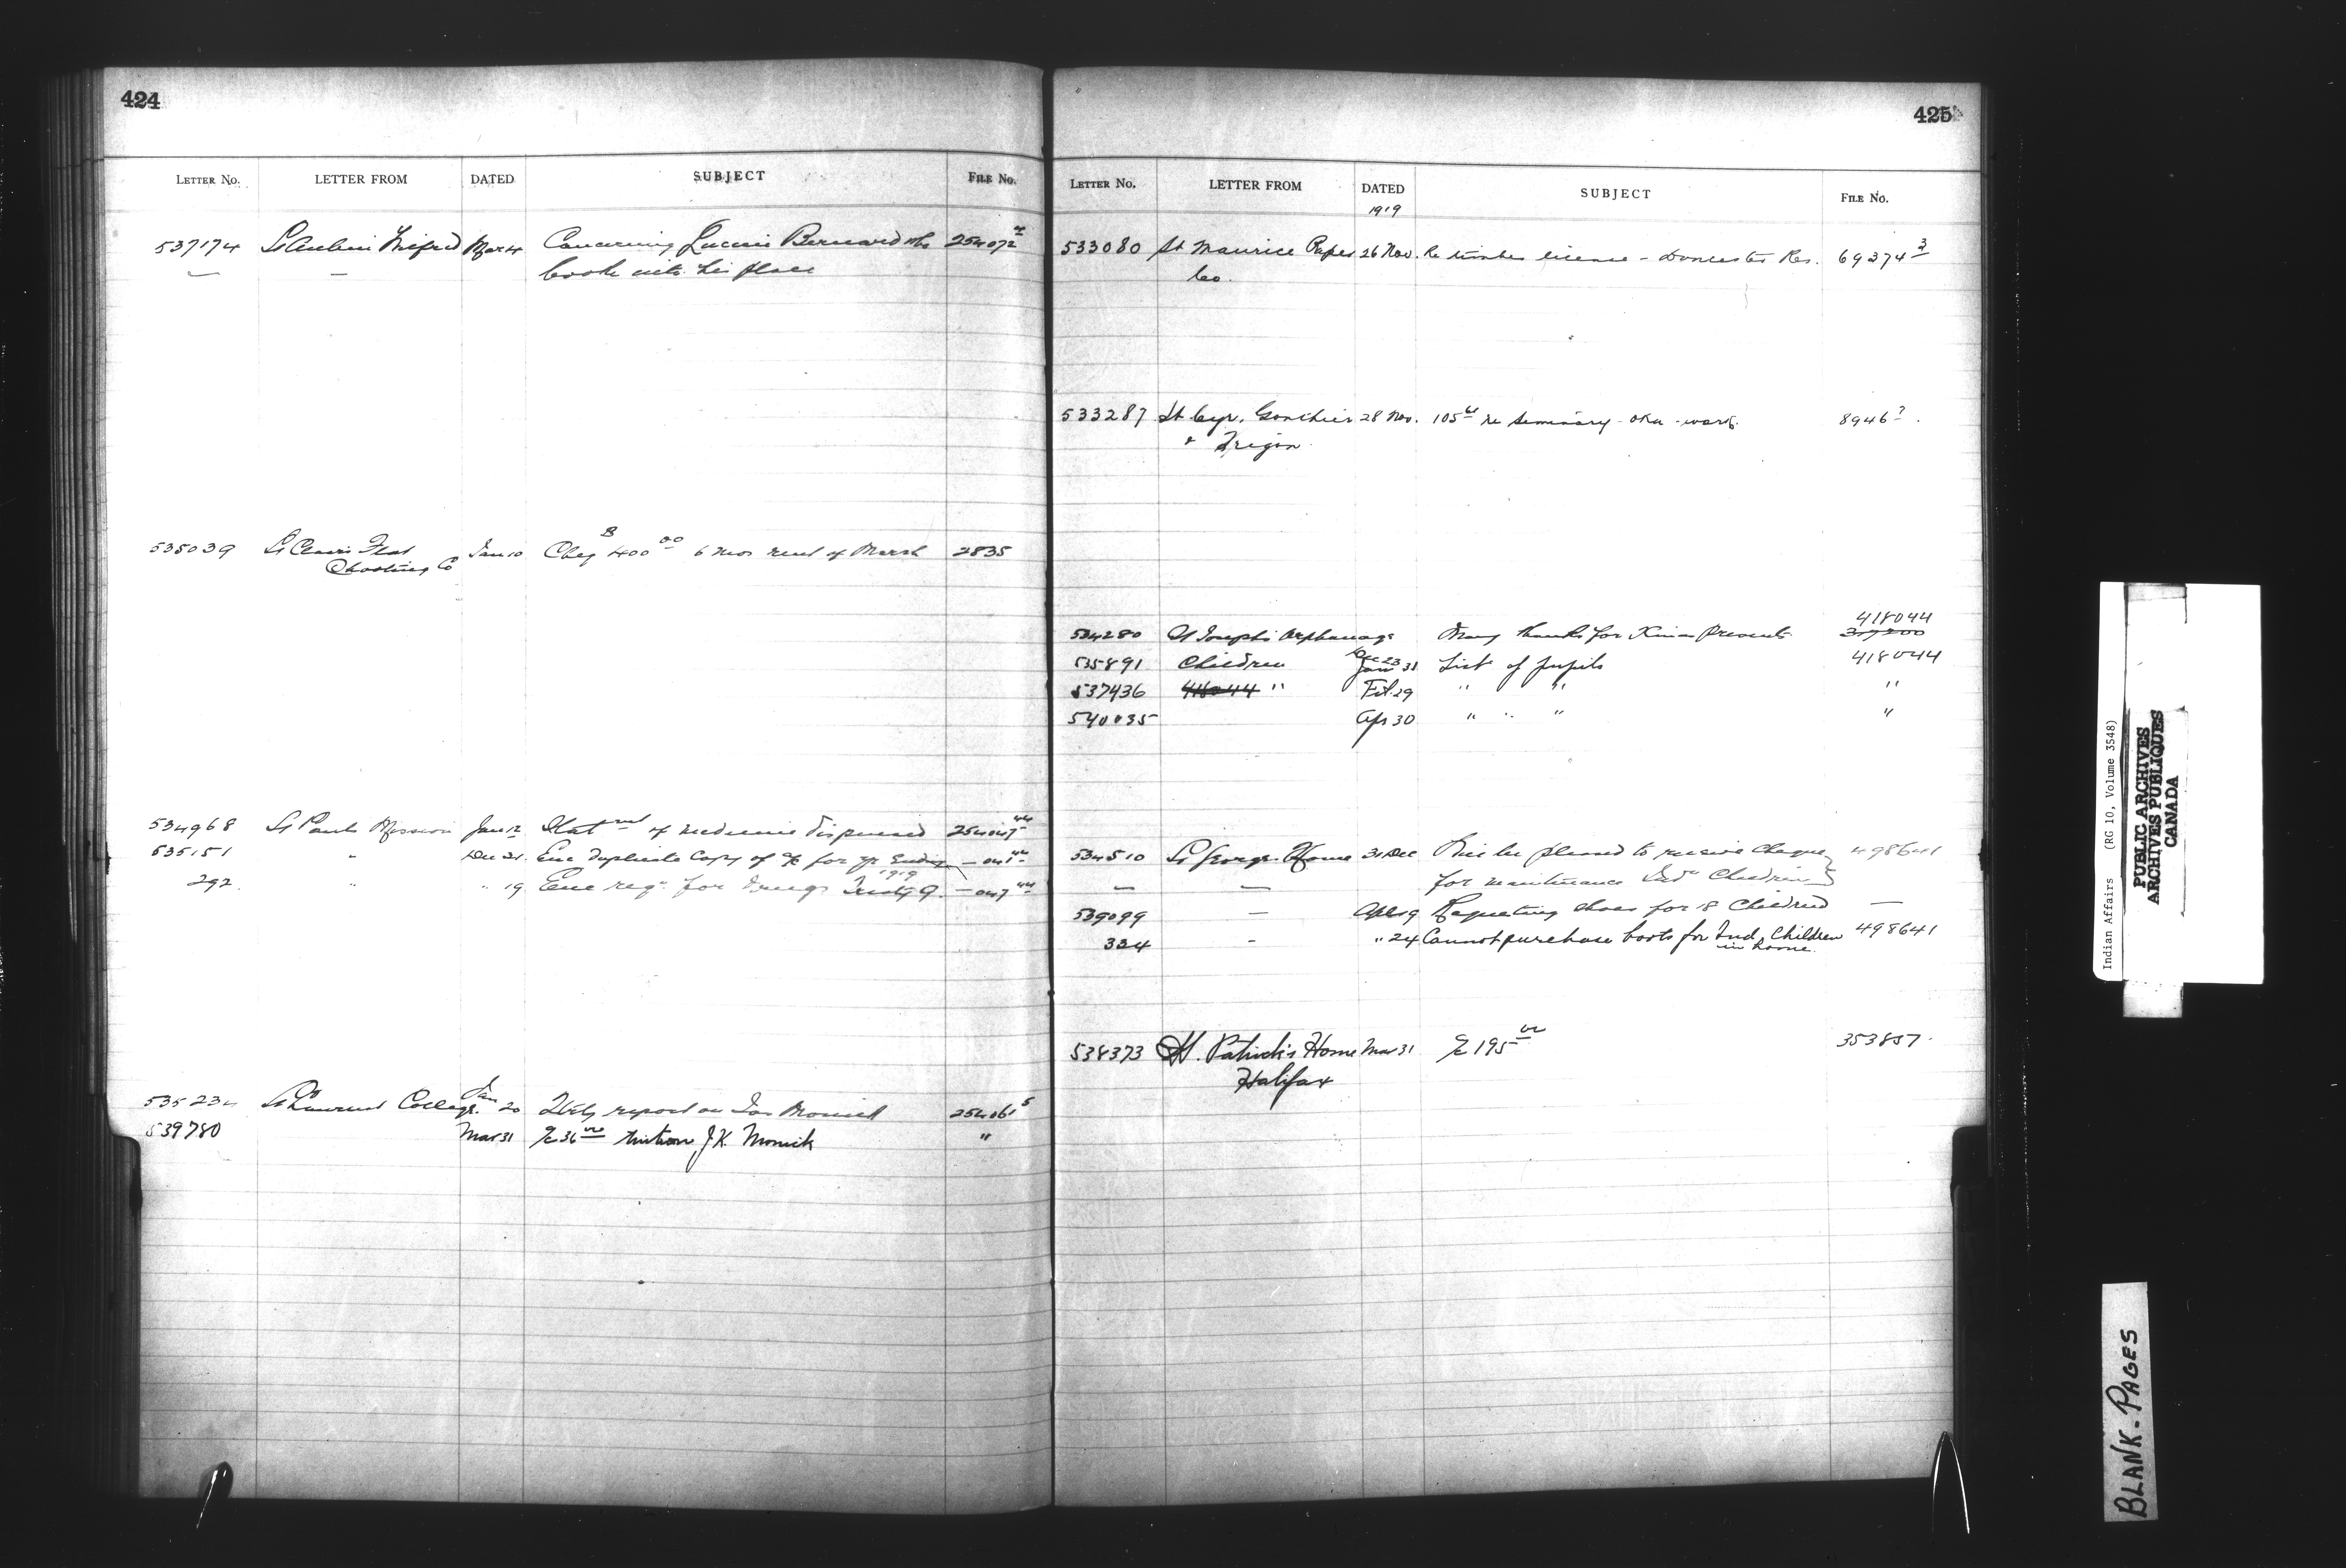 424
LETTER NO. LETTER FROM DATED SUBJECT FILE No.
537174 St Aubin Wilfred Mar 4 Concerning Lucien Bernard who 254072
— — took into his place
535039 St Clair Flat Jan 10 Cheq $400 00 6 mos rent of Marsh 2835
Shooting Co
534968 St Pauls Mission Jan 12 Stat of medicine dispensed
535151 " Dec 31 Enc duplicate copy of a/c for yr Ending
292 " " 19 Enc reqn for drugs 1919
535234 St Laurent College Jan 20 report on Jos Monick 254061 5
539780 Mar 31 a/c 36 00 tuition J.K. Monick "
425
LETTER NO. LETTER FROM DATED SUBJECT FILE No.
1919
533080 St Maurice Paper 26 Nov. Re timber license - Doncaster Res. 69374 3
Co.
533287 St Cyr, Gonthier 28 Nov. 105 re Seminary - Oka - 8946
& Frigon
418044
534280 St Josephs Orphanage Many thanks for Xmas Presents
Dec 23
535891 Children Jan 31 List of pupils 418044
537436 418044 " Feb 29 " " "
540035 Apr 30 " " " "
534510 St George Home 31 Dec Will be pleased to receive cheque 498641
— — for maintenance Indn Children
539099 — Apl 19 Requesting shoes for 18 Children —
334 - " 24 Cannot purchase boots for Ind. Children 498641
in home.
538373 St. Patrick's Home Mar 31 a/c 195 00 353857.
Halifax
Indian Affairs (RG 10, Volume 3548)
PUBLIC ARCHIVES
ARCHIVES PUBLIQUES
CANADA
BLANK-PAGES